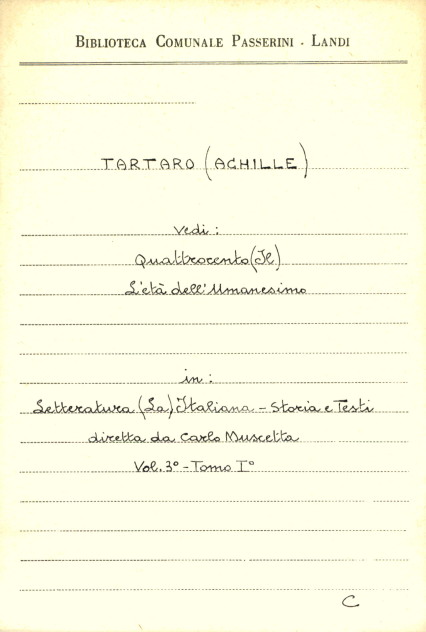 BIBLIOTECA COMUNALE PASSERINI - LANDI
TARTARO (ACHILLE)
vedi:
Quattrocento (Il)
L'età dell'Umanesimo
in:
Letteratura (La) Italiana - Storia e Testi
diretta da Carlo Muscetta
Vol. 3º - Tomo Iº
C